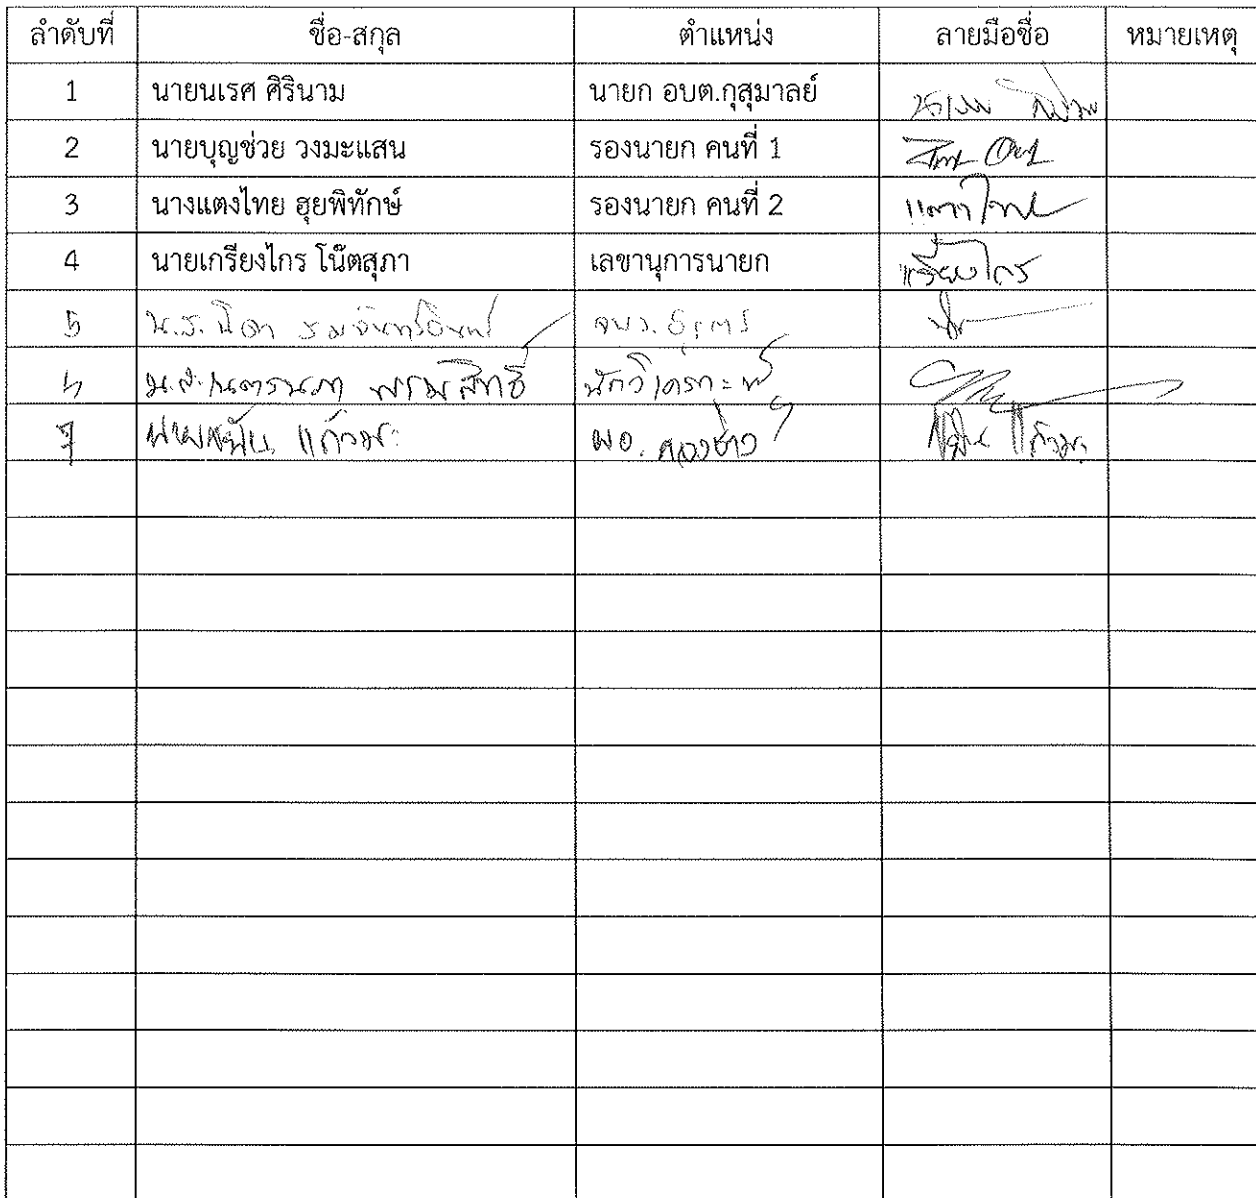 ลำดับที่ ชื่อ-สกุล ตำแหน่ง ลายมือชื่อ หมายเหตุ
1 นายนเรศ ศิรินาม นายก อบต.กุสุมาลย์
2 นายบุญช่วย วงมะแสน รองนายก คนที่ 1
3 นางแตงไทย ฮุยพิทักษ์ รองนายก คนที่ 2 แตงไทย
4 นายเกรียงไกร โน๊ตสุภา เลขานุการนายก เกรียงไกร
5 น.ส. นิดา จพง. ธุรการ
น.ส. เนตรนภา พรมสิทธิ์ นักวิเคราะห์ฯ
7 แก้วมะ ผอ. กองช่าง